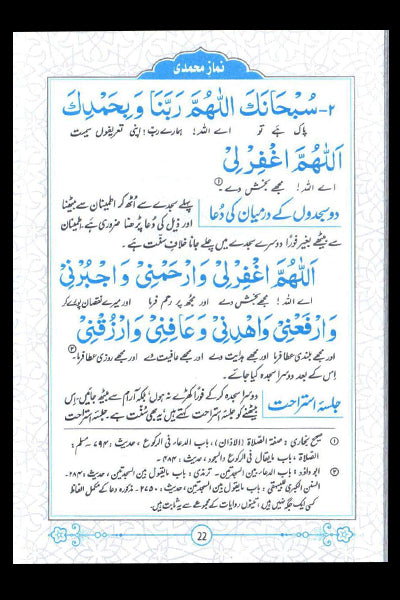 نماز محمدی
۲- سُبْحَانَكَ اللّٰهُمَّ رَبَّنَا وَبِحَمْدِكَ
پاک ہے تو اے اللہ! ہمارے رب! اپنی تعریفوں سمیت
اَللّٰهُمَّ اغْفِرْ لِىْ
اے اللہ! مجھے بخش دے۔ ①
دو سجدوں کے درمیان کی دُعا
پہلے سجدے سے اُٹھ کر اطمینان سے بیٹھنا
اور ذیل کی دُعا پڑھنا ضروری ہے، اطمینان
سے بیٹھے بغیر فوراً دوسرے سجدے میں چلے جانا خلافِ سنّت ہے۔
اَللّٰهُمَّ اغْفِرْ لِىْ وَارْحَمْنِىْ وَاجْبُرْنِىْ
اے اللہ! مجھے بخش دے اور مجھ پر رحم فرما اور میرے نقصان پورے کر
وَارْفَعْنِىْ وَاهْدِنِىْ وَعَافِنِىْ وَارْزُقْنِىْ
اور مجھے بلندی عطا فرما اور مجھے ہدایت دے اور مجھے عافیت دے اور مجھے روزی عطا فرما۔ ②
اس کے بعد دوسرا سجدہ کیا جائے۔
جلسۂ استراحت
دوسرا سجدہ کر کے فوراً کھڑے نہ ہوں بلکہ آرام سے بیٹھ جائیں، اس
بیٹھنے کو جلسۂ استراحت کہتے ہیں، یہ بھی سنّت ہے۔ جلسۂ استراحت
① صحیح بخاری: صفة الصلاة (الاذان)، باب الدعاء فی الرکوع، حدیث: ۷۹۴، مسلم:
الصلاة، باب مایقال فی الرکوع والسجود، حدیث: ۴۸۴۔
② ابوداؤد: باب الدعاء بین السجدتین۔ ترمذی: باب مایقول بین السجدتین، حدیث: ۲۸۴،
السنن الکبریٰ للبیہقی: باب مایقول بین السجدتین، حدیث: ۲۷۵۰۔ مذکورہ دعا کے مکمل الفاظ
کسی ایک جگہ نہیں ہیں، تینوں روایات کے مجموعے سے یہ ثابت ہیں۔
22